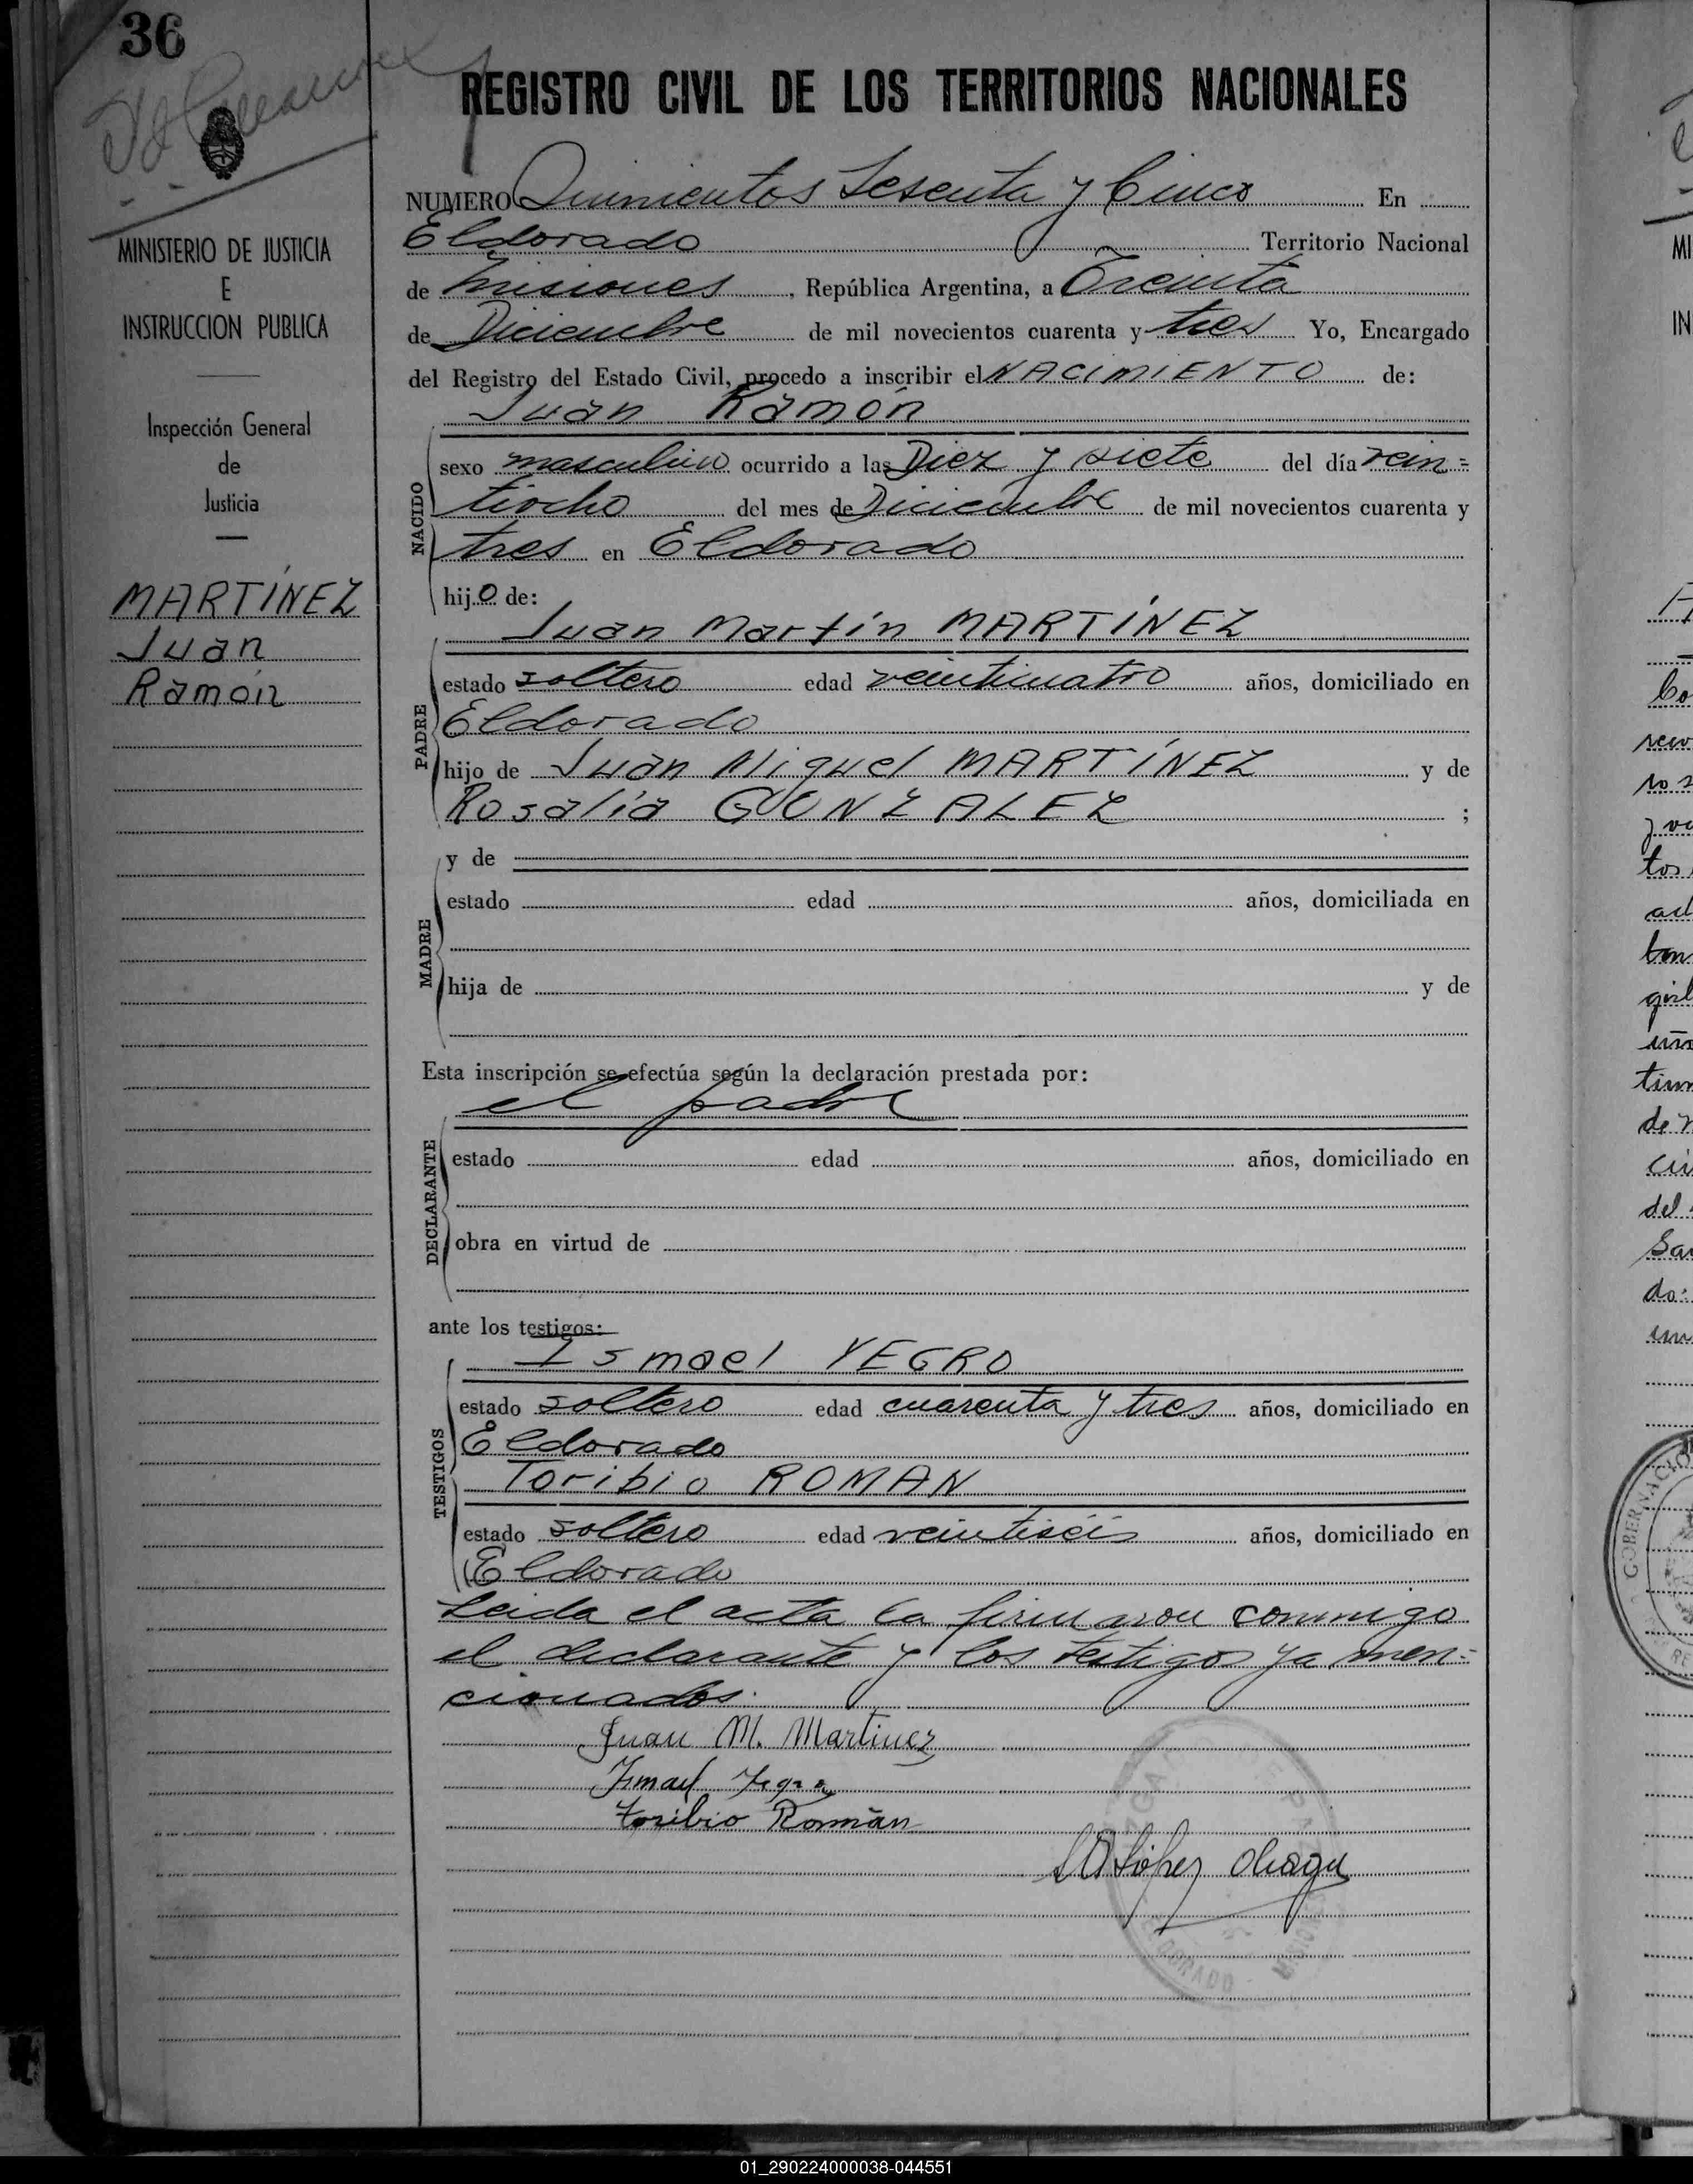 36
REGISTRO CIVIL DE LOS TERRITORIOS NACIONALES
MINISTERIO DE JUSTICIA
E
INSTRUCCION PUBLICA
Inspección General
de
Justicia
MARTÍNEZ
Juan
Ramón
NUMERO Quinientos Sesenta y Cinco En
Eldorado Territorio Nacional
de Misiones, República Argentina, a Treinta
de Diciembre de mil novecientos cuarenta y tres Yo, Encargado
del Registro del Estado Civil, procedo a inscribir el NACIMIENTO de:
Juan Ramón
NACIDO
sexo masculino ocurrido a las Diez y siete del día vein=
tiocho del mes de Diciembre de mil novecientos cuarenta y
tres en Eldorado
hijo de:
Juan Martín MARTÍNEZ
PADRE
estado soltero edad veinticuatro años, domiciliado en
Eldorado
hijo de Juan Miguel MARTÍNEZ y de
Rosalía GONZALEZ ;
MADRE
y de
estado edad años, domiciliada en
hija de y de
Esta inscripción se efectúa según la declaración prestada por:
el padre
DECLARANTE
estado edad años, domiciliado en
obra en virtud de
ante los testigos:
TESTIGOS
Ismael YEGRO
estado soltero edad cuarenta y tres años, domiciliado en
Eldorado
Toribio ROMAN
estado soltero edad veintiseis años, domiciliado en
Eldorado
Leida el acta la firmaron conmigo
el declarante y los testigos ya men=
cionados.
Juan M. Martinez
Ismael Yegro
Toribio Román
López
ELDORADO - MISIONES
01_290224000038-044551